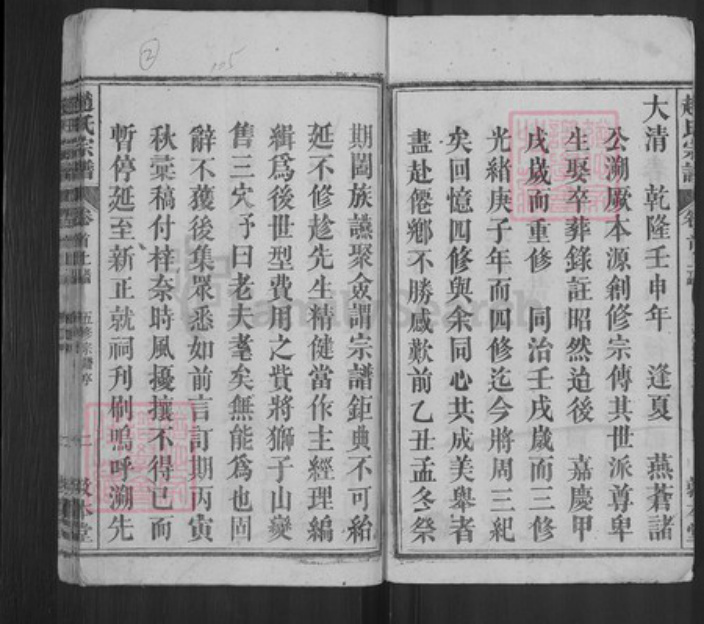 大清　乾隆壬申年　逢夏　燕蒼諸
公溯厥本源創修宗傳其世派尊卑
生娶卒葬錄註昭然迨後　嘉慶甲
戌歲而重修　同治壬戌歲而三修
光緒庚子年而四修迄今將周三紀
矣回憶四修與余同心共成美舉者
盡赴僊鄉不勝感歎前乙丑孟冬祭
期闔族讌聚僉謂宗譜鉅典不可紿
延不修趁先生精健當作主經理編
緝爲後世型費用之貲將獅子山變
售三穴予曰老夫耄矣無能爲也固
辭不獲後集眾悉如前言訂期丙寅
秋彚稿付梓奈時風擾攘不得已而
暫停延至新正就祠刋刷嗚呼溯先
趙氏宗譜
卷首上
五修宗譜序
二
敦本堂
②